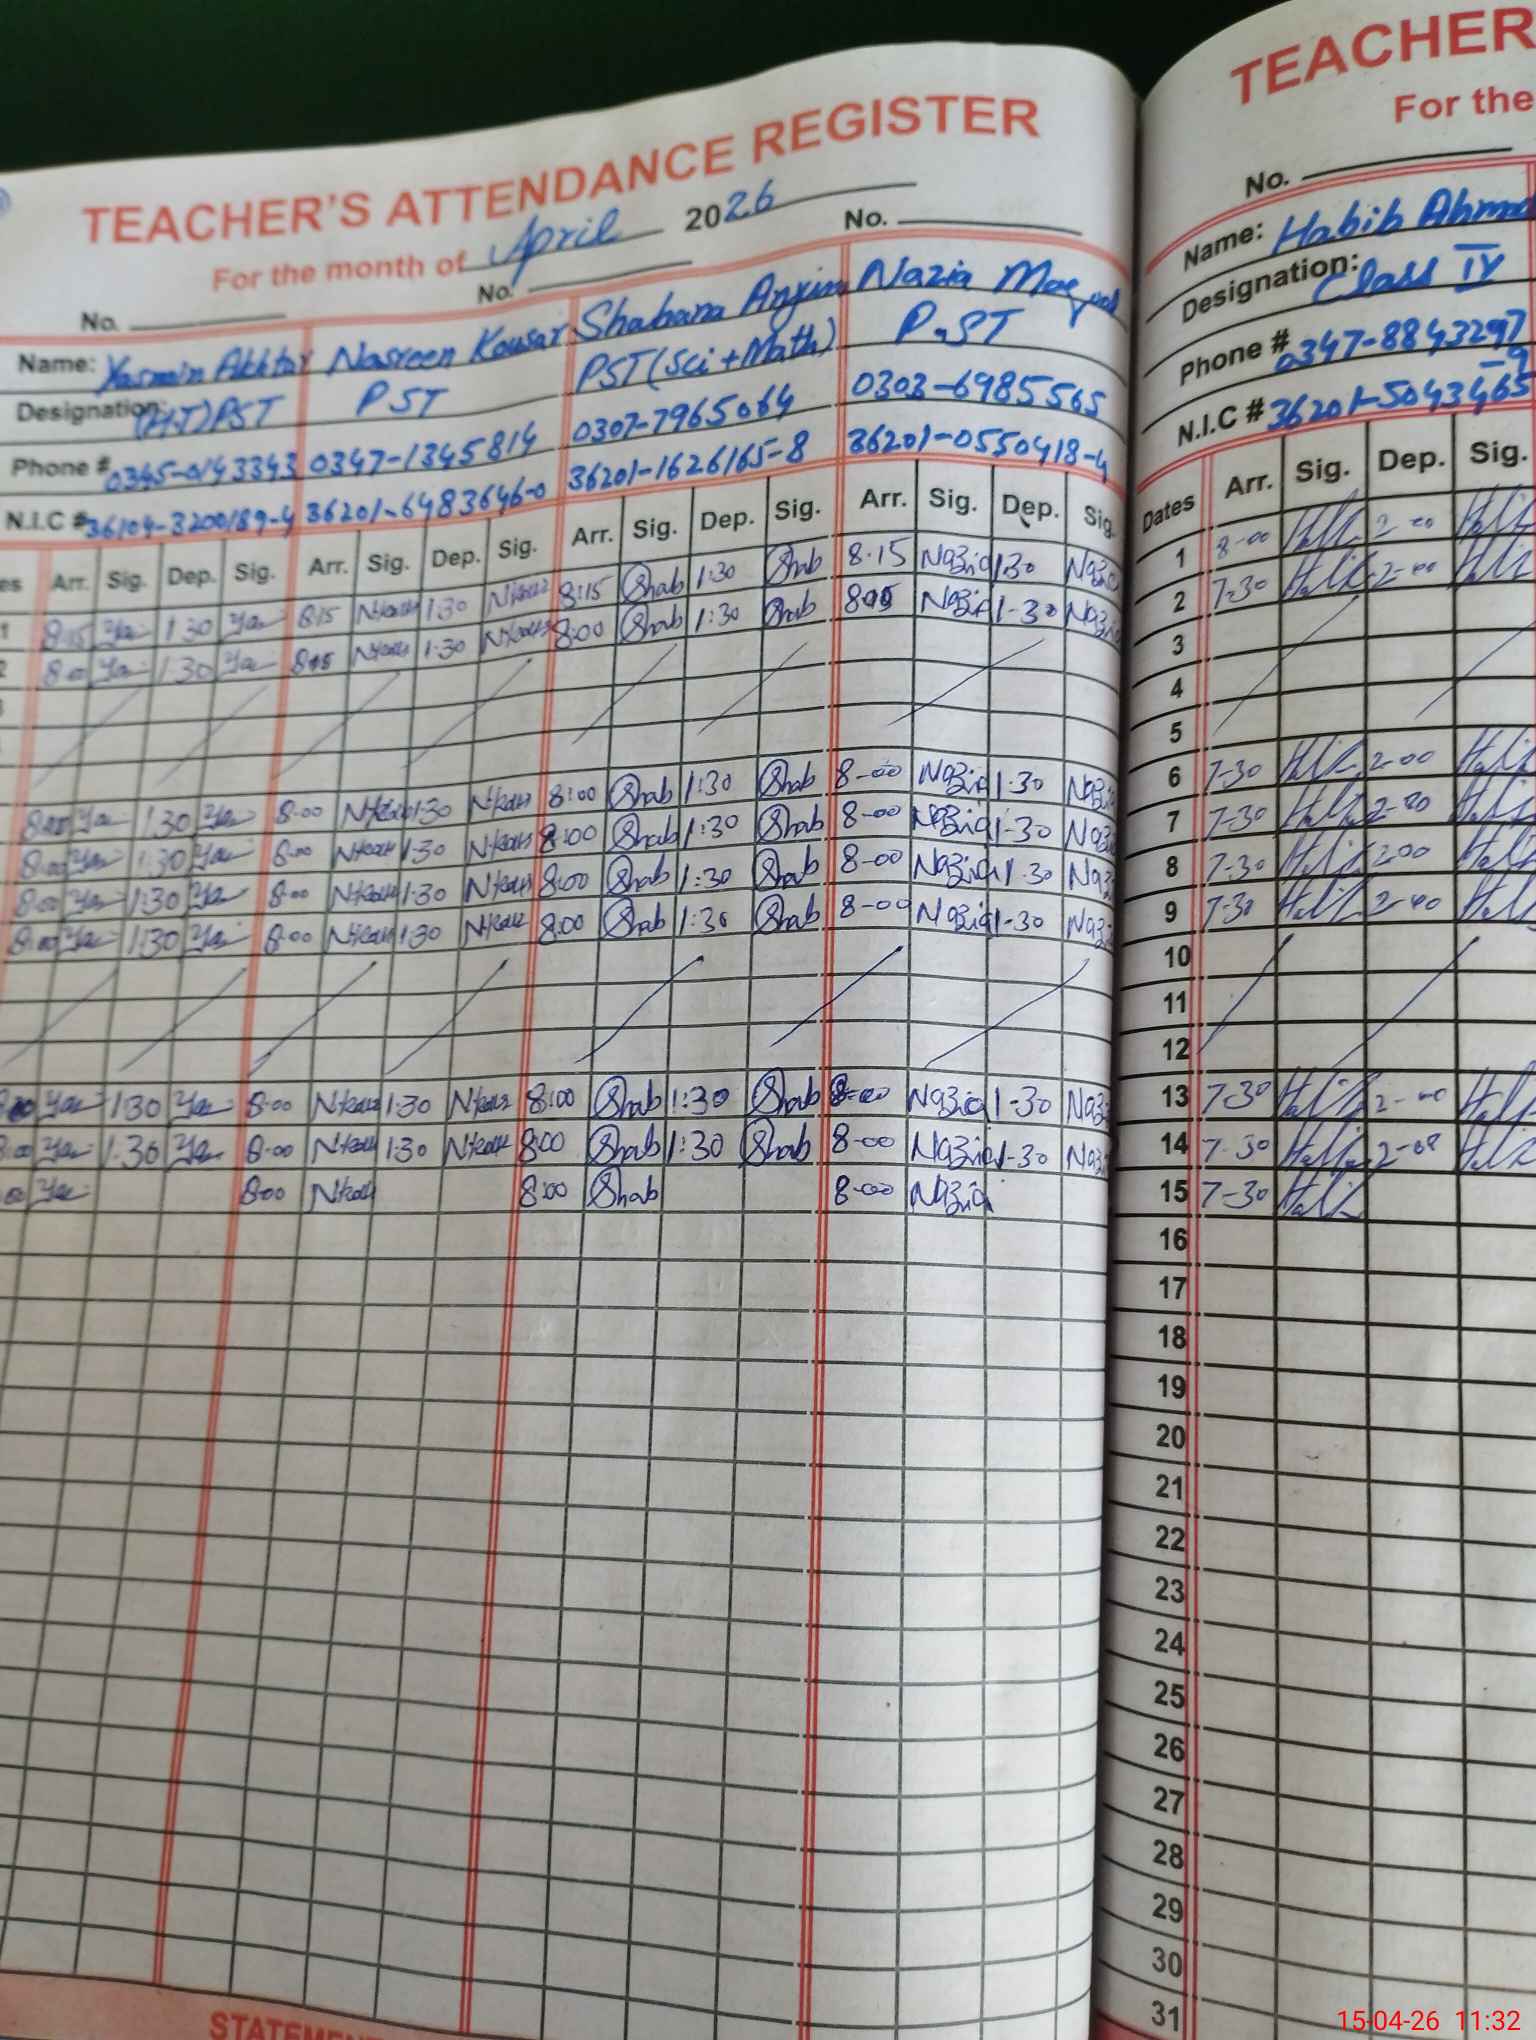 TEACHER'S ATTENDANCE REGISTER
For the month of April 2026
No. No. No.
Name: Yasmin Akhtar Nasreen Kousar Shabana Anjim Nazia
Designation: (H.T) PST PST PST (Sci + Math) P.ST
Phone # 0345-0143343 0347-1345814 0307-7965064 0303-6985565
N.I.C # 36104-3200189-4 36201-6483646-0 36201-1626165-8 36201-0550418-4
es Arr. Sig. Dep. Sig. Arr. Sig. Dep. Sig. Arr. Sig. Dep. Sig. Arr. Sig. Dep. Sig.
1 8:15 Ya 1:30 Ya 8:15 Nkous 1:30 Nkous 8:15 Shab 1:30 Shab 8.15 Nazia 130 Nazia
2 8:00 Ya 1:30 Ya Nkous 1:30 Nkous 8:00 Shab 1:30 Shab Nazia 1-30 Nazia
Ya 1:30 Ya 8-00 Nkous 1-30 Nkous 8:00 Shab 1:30 Shab 8-00 Nazia 1-30 Naz
8:00 Ya 1:30 Ya 8-00 Nkous 1-30 Nkous 8:00 Shab 1:30 Shab 8-00 Nazia 1-30 Naz
8:00 Ya 1:30 Ya 8-00 Nkous 1-30 Nkous 8:00 Shab 1:30 Shab 8-00 Nazia 1-30 Naz
8:00 Ya 1:30 Ya 8-00 Nkous 1-30 Nkous 8:00 Shab 1:30 Shab 8-00 Nazia 1-30 Naz
Ya 1:30 Ya 8-00 Nkous 1-30 Nkous 8:00 Shab 1:30 Shab 8-00 Nazia 1-30 Naz
:00 Ya 1:30 Ya 8-00 Nkous 1-30 Nkous 8:00 Shab 1:30 Shab 8-00 Nazia 1-30 Naz
00 Ya 8-00 Nkous 8:00 Shab 8-00 Nazia
STATEMEN
TEACHER
For the
No.
Name: Habib Ahma
Designation: Class IV
Phone # 0347-8843297
N.I.C # 36201-5043465
-9
Dates Arr. Sig. Dep. Sig.
1 8-00 2-00
2 7-30 2-00
3
4
5
6 7-30 2-00
7 7-30 2-00
8 7-30 200
9 7-30 2-00
10
11
12
13 7-30 2-00
14 7-30
15 7-30
16
17
18
19
20
21
22
23
24
25
26
27
28
29
30
31
15-04-26 11:32